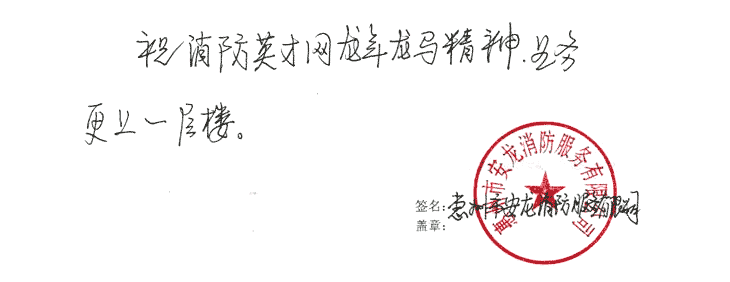 祝消防英才网龙年龙马精神.业务
更上一层楼。
惠州市安龙消防服务有限公司
签名：惠州市安龙消防服务有限公司
盖章：